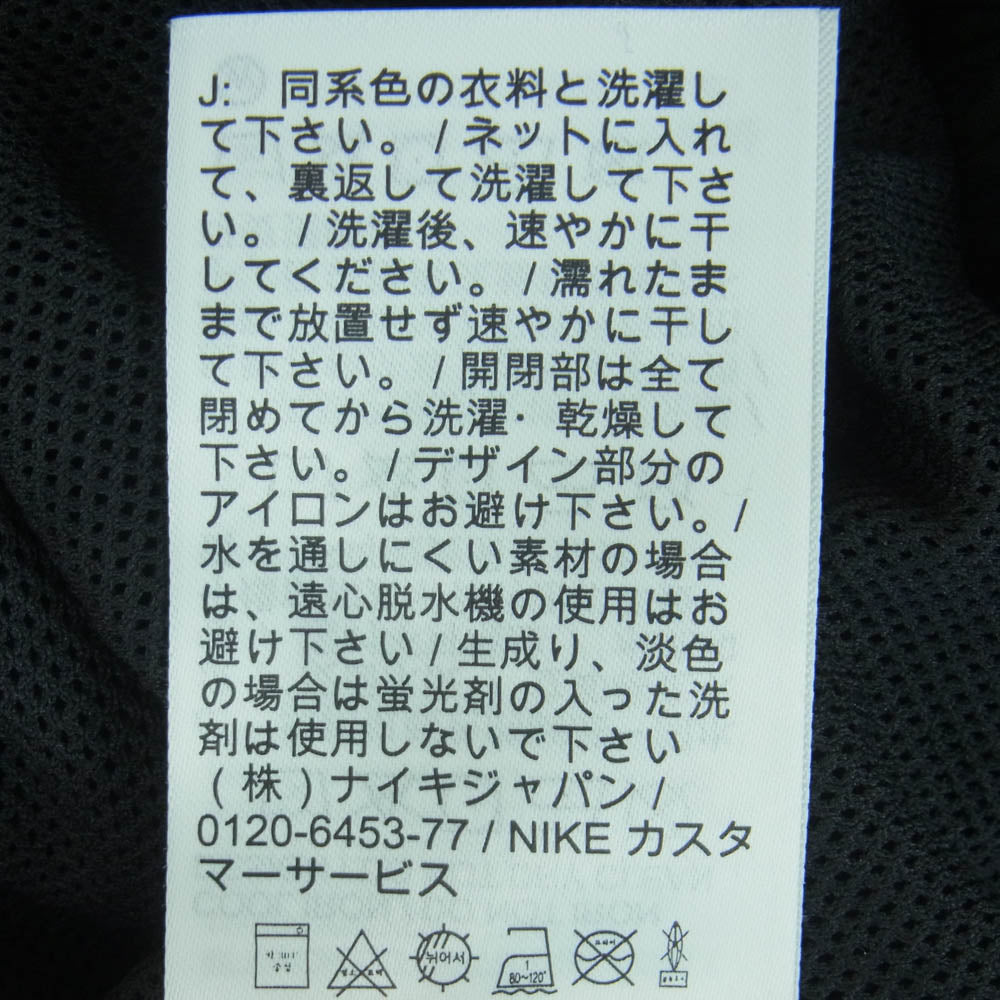 J: 同系色の衣料と洗濯し
て下さい。/ ネットに入れ
て、裏返して洗濯して下さ
い。/ 洗濯後、速やかに干
してください。/ 濡れたま
まで放置せず速やかに干し
て下さい。/ 開閉部は全て
閉めてから洗濯・乾燥して
下さい。/ デザイン部分の
アイロンはお避け下さい。/
水を通しにくい素材の場合
は、遠心脱水機の使用はお
避け下さい / 生成り、淡色
の場合は蛍光剤の入った洗
剤は使用しないで下さい
(株)ナイキジャパン /
0120-6453-77 / NIKE カスタ
マーサービス
뉘어서 1
80~120°